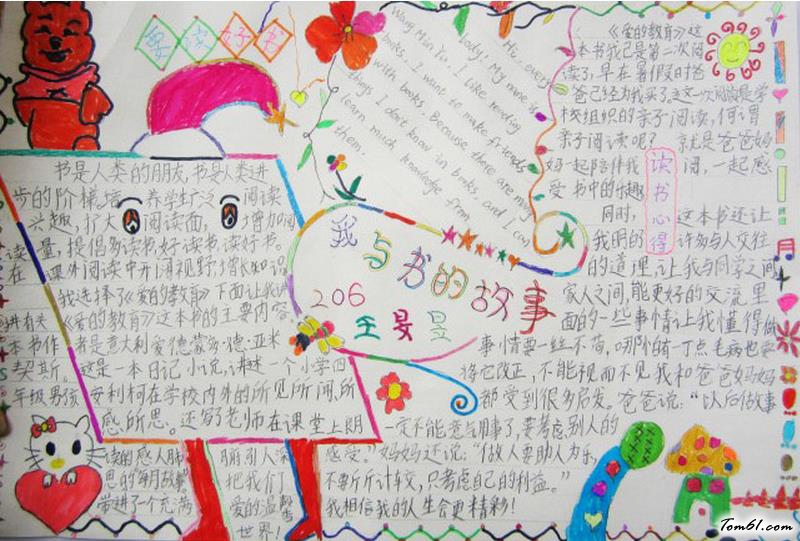 要读好书
Hi, every
body! My name is
Wang Min Yu. I like reading
books. I want to make friends
with books. Because there are many
things I don't know in books and I can
learn much knowledge from
them.
书是人类的朋友,书是人类进
步的阶梯
养学生广泛
阅读
兴趣,扩大
阅读面,
增加阅
读量,提倡多读书好读书读好书。
在课外阅读中开阔视野增长知识
我选择了《爱的教育》下面让我
《爱的教育》这本书的主要内容。
本书作者是意大利爱德蒙多·德·亚米
契斯。这是一本日记小说,讲述一个小学四
年级男孩安利柯在学校内外的所见所闻,所
感所思。还写老师在课堂上朗
读的感人肺
丽引人深
把我们
带进了一个充满
爱的温馨
世界!
我与书的故事
206
王旻昱
读书心得
《爱的教育》这
本书我已是第二次阅
读了,早在暑假时爸
爸已经为我买了。这一次阅读是学
校组织的亲子阅读,何谓
亲子阅读呢?就是爸爸妈
妈一起陪伴我阅读,一起感
受书中的乐趣
同时,这本书还让
我明的许多与人交往
的道理,让我与同学之间
家人之间,能更好的交流。里
面的一些事情让我懂得做
事情要一丝不苟,哪怕有一丁点毛病也要
将它改正,不能视而不见。我和爸爸妈妈
都受到很多启发。爸爸说:“以后做事
一定不能意气用事了,要考虑别人的
感受。”妈妈还说:“做人要助人为乐,
不要斤斤计较,只考虑自己的利益。”
我相信我的人生会更精彩!
Tom61.com